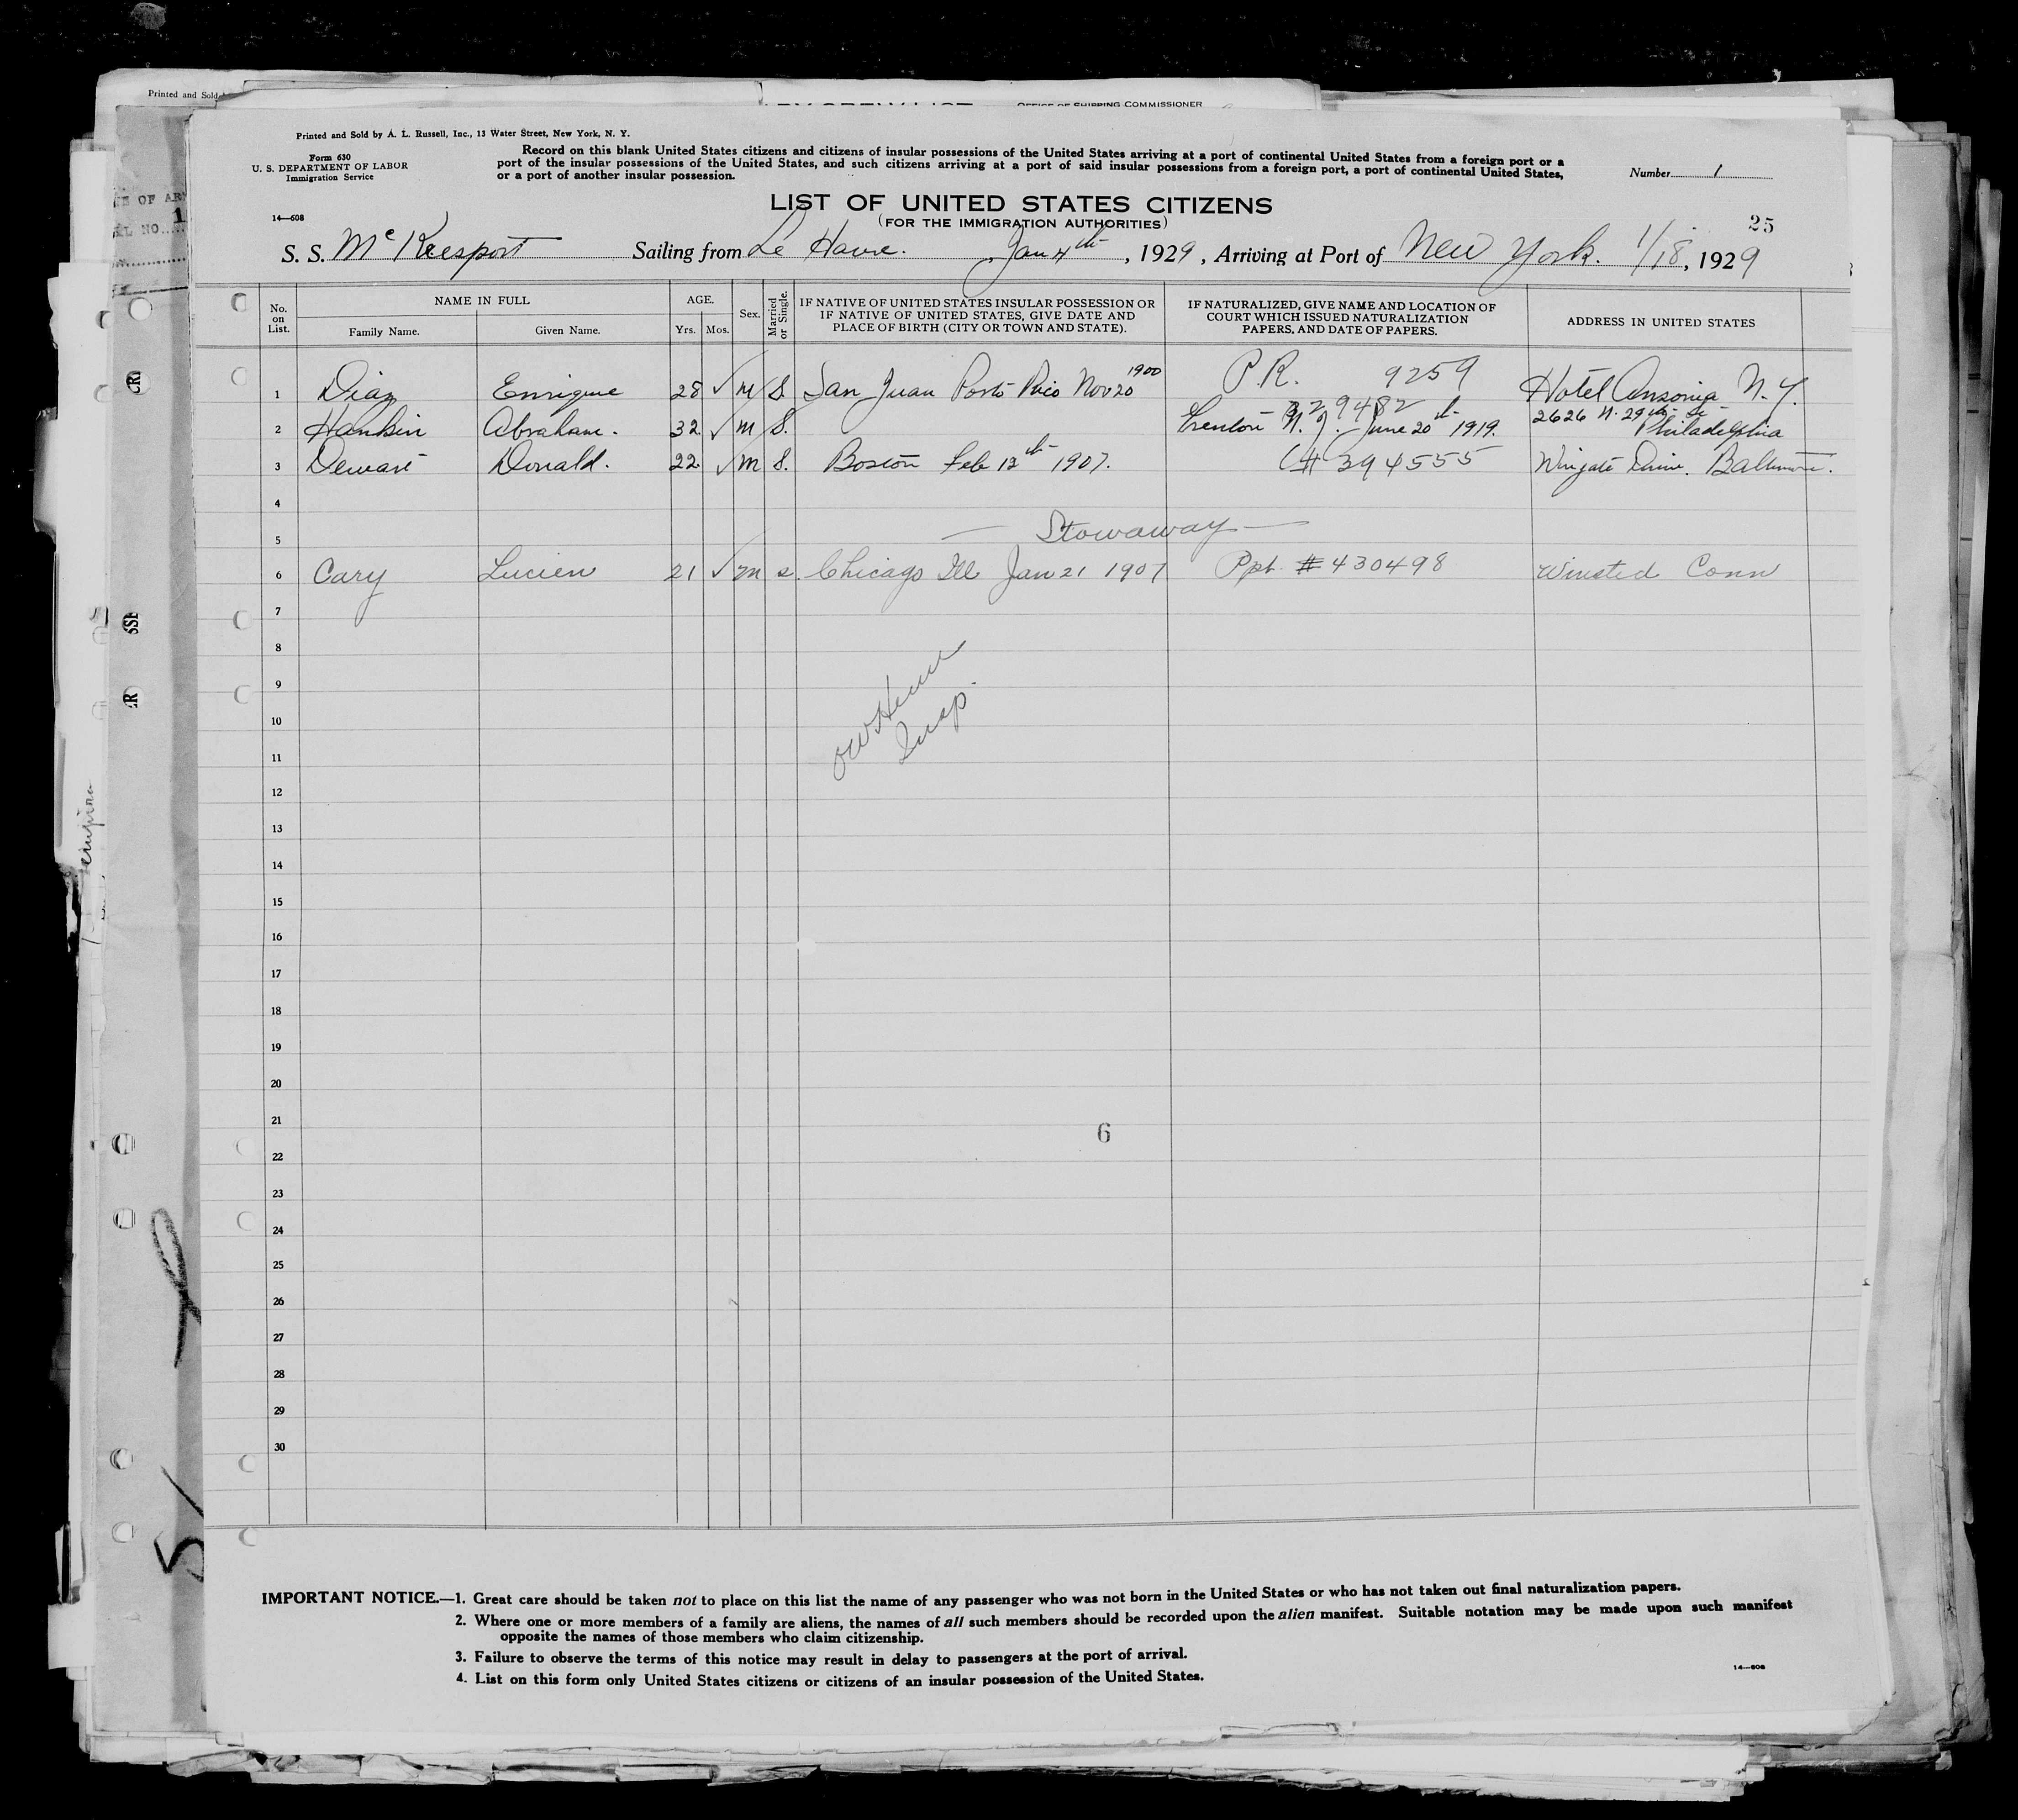 Printed and Sold
OFFICE OF SHIPPING COMMISSIONER
Printed and Sold by A. L. Russell, Inc., 13 Water Street, New York, N. Y.
Form 630
U. S. DEPARTMENT OF LABOR
Immigration Service
Record on this blank United States citizens and citizens of insular possessions of the United States arriving at a port of continental United States from a foreign port or a
port of the insular possessions of the United States, and such citizens arriving at a port of said insular possessions from a foreign port, a port of continental United States,
or a port of another insular possession.
Number 1
LIST OF UNITED STATES CITIZENS
(FOR THE IMMIGRATION AUTHORITIES)
14—608
25
S. S. McKeesport Sailing from Le Havre. Jan 4th, 1929, Arriving at Port of New York. 1/18, 1929
No. on List. NAME IN FULL Family Name. Given Name. AGE. Yrs. Mos. Sex. Married or Single. IF NATIVE OF UNITED STATES INSULAR POSSESSION OR IF NATIVE OF UNITED STATES, GIVE DATE AND PLACE OF BIRTH (CITY OR TOWN AND STATE). IF NATURALIZED, GIVE NAME AND LOCATION OF COURT WHICH ISSUED NATURALIZATION PAPERS, AND DATE OF PAPERS. ADDRESS IN UNITED STATES
1 Diaz Enrique 28 ✓ M S. San Juan Porto Rico Nov 20 1900 P.R. 9259 Hotel Ansonia N.Y.
2 Hankin Abraham. 32 ✓ M S. 229482 Trenton N.J. June 20th 1919. 2626 N. 29th St Philadelphia
3 Dewart Donald. 22 ✓ M S. Boston Feb 12th 1907. # 394555 Wingate Drive. Baltimore.
4
5 — Stowaway —
6 Cary Lucien 21 ✓ m s Chicago Ill Jan 21 1907 Ppt. # 430498 Winsted Conn
7
8
9
10
Insp.
11
12
13
14
15
16
17
18
19
20
21
6
22
23
24
25
26
27
28
29
30
IMPORTANT NOTICE.—1. Great care should be taken not to place on this list the name of any passenger who was not born in the United States or who has not taken out final naturalization papers.
2. Where one or more members of a family are aliens, the names of all such members should be recorded upon the alien manifest. Suitable notation may be made upon such manifest
opposite the names of those members who claim citizenship.
3. Failure to observe the terms of this notice may result in delay to passengers at the port of arrival.
4. List on this form only United States citizens or citizens of an insular possession of the United States.
14—608